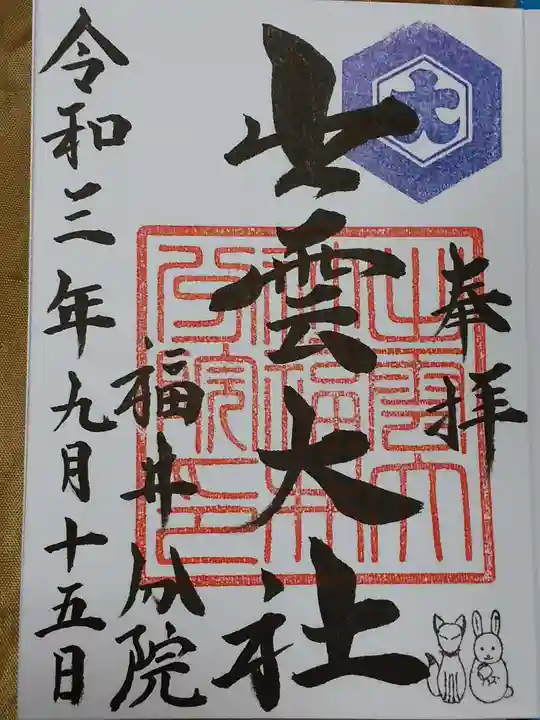 大
奉拝
出雲大社
出雲大社福井分院之印
福井分院
令和三年九月十五日